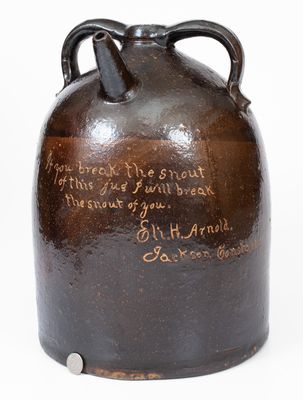 If you break the snout
of this jug I will break
the snout of you.
Eli H. Arnold.
Jackson